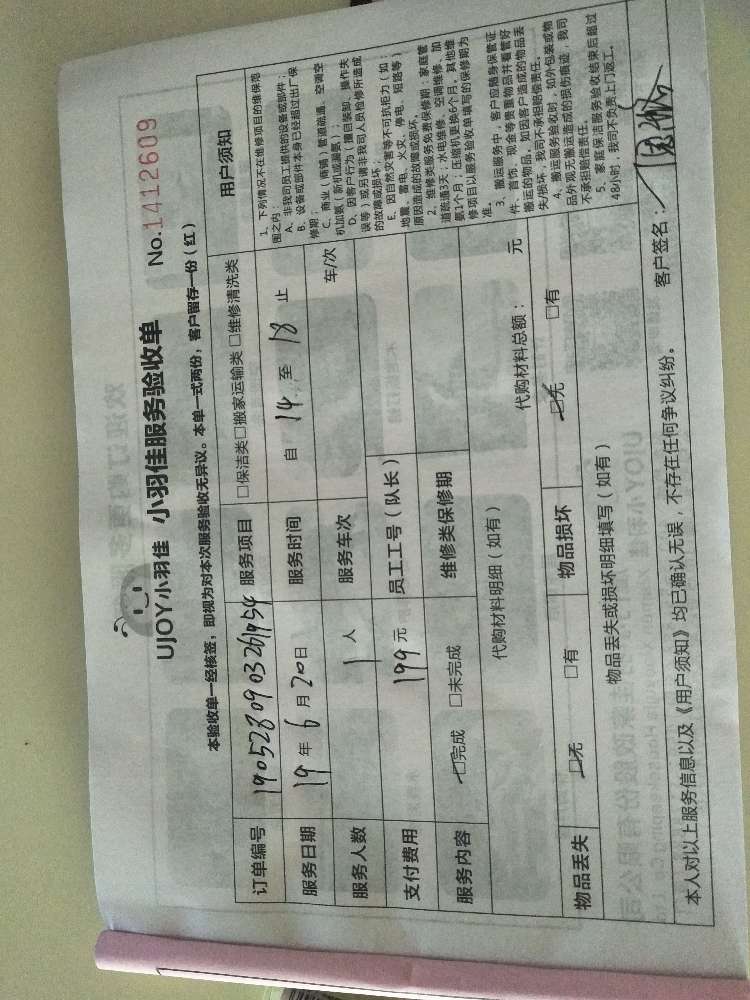 UJOY小羽佳 小羽佳服务验收单
No.1412609
本验收单一经核签，即视为对本次服务验收无异议。本单一式两份，客户留存一份（红）
订单编号 服务项目 □保洁类□搬家运输类 □维修清洗类
服务日期 19 年 6 月 20 日 服务时间 自 14 至 18 止
服务人数 1 人 服务车次 车/次
支付费用 199 元 员工工号（队长）
服务内容 □完成 □未完成 维修类保修期
代购材料明细（如有） 代购材料总额： 元
物品丢失 □无 □有 物品损坏 □无 □有
物品丢失或损坏明细填写（如有）
用户须知
1、下列情况不在维修项目的维保范
围之内：
A、非我司员工提供的设备或部件；
B、设备或部件本身已经超过出厂保
修期；
C、商业（商铺）管道疏通、空调空
机加氨（新机或漏氨）；
D、因客户行为（擅自装卸、操作失
误等）或另请非我司人员检修所造成
的故障或损坏；
E、因自然灾害等不可抗拒力（如：
地震、雷电、火灾、停电、短路等）
原因造成的故障或损坏。
2、维修类服务免费保修期：家庭管
道疏通3天；水电维修、空调维修、加
氨1个月；压缩机更换6个月，其他维
修项目以服务验收单填写的保修期为
准。
3、搬运服务中，客户应随身保管证
件、首饰、现金等贵重物品并看管好
搬运的物品，如因客户造成的物品丢
失/损坏，我司不承担赔偿责任。
4、搬运服务验收时，如外包装或物
品外观无搬运造成的损伤痕迹，我司
不承担赔偿责任。
5、家庭保洁服务验收结束后超过
48小时，我司不负责上门返工。
本人对以上服务信息以及《用户须知》均已确认无误，不存在任何争议纠纷。 客户签名：